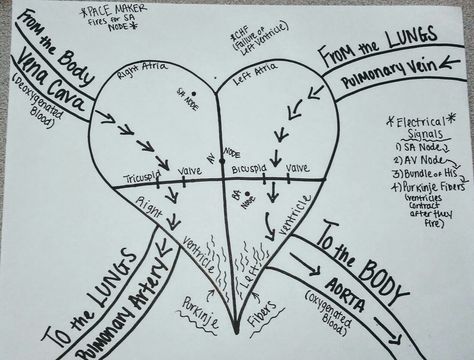 *PACE MAKER
Fires for SA
NODE*
*CHF
(Failure of
Left Ventricle)
From the Body
Vena Cava
(Deoxygenated
Blood)
From the LUNGS
Pulmonary Vein
Right Atria
Left Atria
SA NODE
AV NODE
Tricuspid Valve
Bicuspid Valve
SA
NODE
Right Ventricle
Left Ventricle
*Electrical*
Signals
1) SA Node
2) AV Node
3) Bundle of His
4) Purkinje Fibers
(ventricles
contract
after they
fire)
To the LUNGS
Pulmonary Artery
Purkinje Fibers
To the BODY
AORTA
(Oxygenated
Blood)